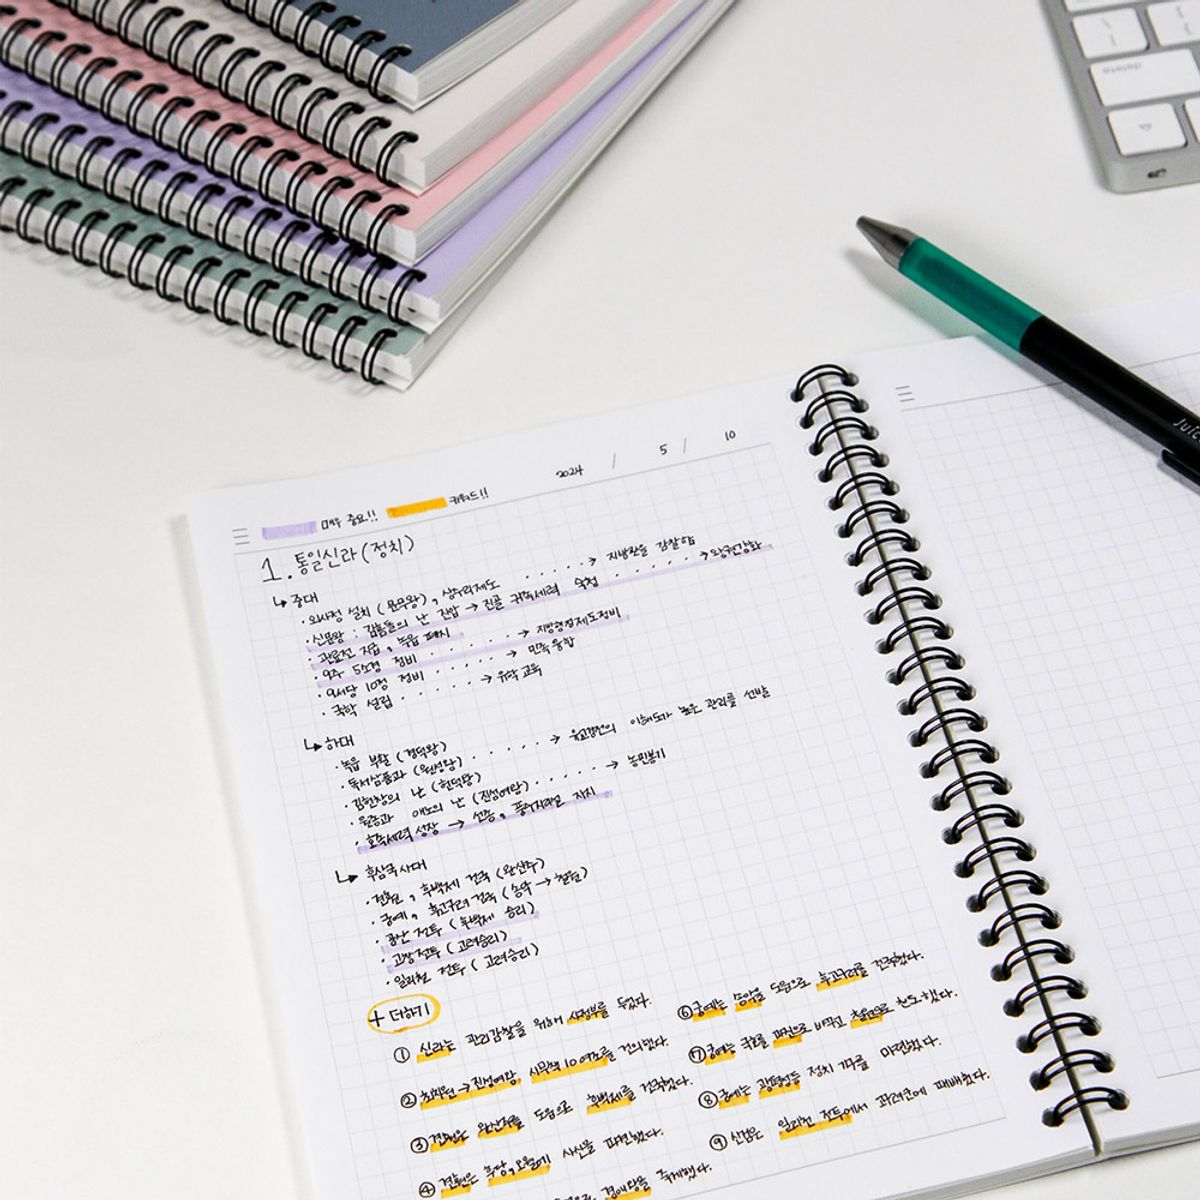 delete
Juic
2024 / 5 / 10
매우 중요!! 키워드!!
1. 통일신라 (정치)
↳ 중대
· 외사정 설치 (문무왕), 상수리제도 ····· → 지방관을 감찰함
· 신문왕 : 김흠돌의 난 진압 → 진골 귀족세력 숙청 ····· → 왕권강화
· 관료전 지급, 녹읍 폐지
· 9주 5소경 정비 ···· → 지방행정제도정비
· 9서당 10정 정비 ···· → 민족융합
· 국학 설립 ····· → 유학 교육
↳ 하대
· 녹읍 부활 (경덕왕)
· 독서삼품과 (원성왕) ····· → 유교경전의 이해도가 높은 관리를 선발
· 김헌창의 난 (헌덕왕)
· 원종과 애노의 난 (진성여왕) ····· → 농민봉기
· 호족세력 성장 → 선종, 풍수지리설 지지
↳ 후삼국시대
· 견훤, 후백제 건국 (완산주)
· 궁예, 후고구려 건국 (송악 → 철원)
· 공산 전투 (후백제 승리)
· 고창전투 (고려승리)
· 일리천 전투 (고려승리)
+ 더하기
① 신라는 관리감찰을 위해 사정부를 두었다.
② 최치원 → 진성여왕 시무책 10여조를 건의했다.
③ 견훤은 완산주를 도읍으로 후백제를 건국했다.
④ 견훤은 후당, 오월에 사신을 파견했다.
경애왕을 축게했다.
⑥ 궁예는 송악을 도읍으로 후고구려를 건국했다.
⑦ 궁예는 국호를 마진으로 바꾸고 철원으로 천도했다.
⑧ 궁예는 광평성등 정치 기구를 마련했다.
⑨ 신검은 일리천 전투에서 고려군에 패배했다.